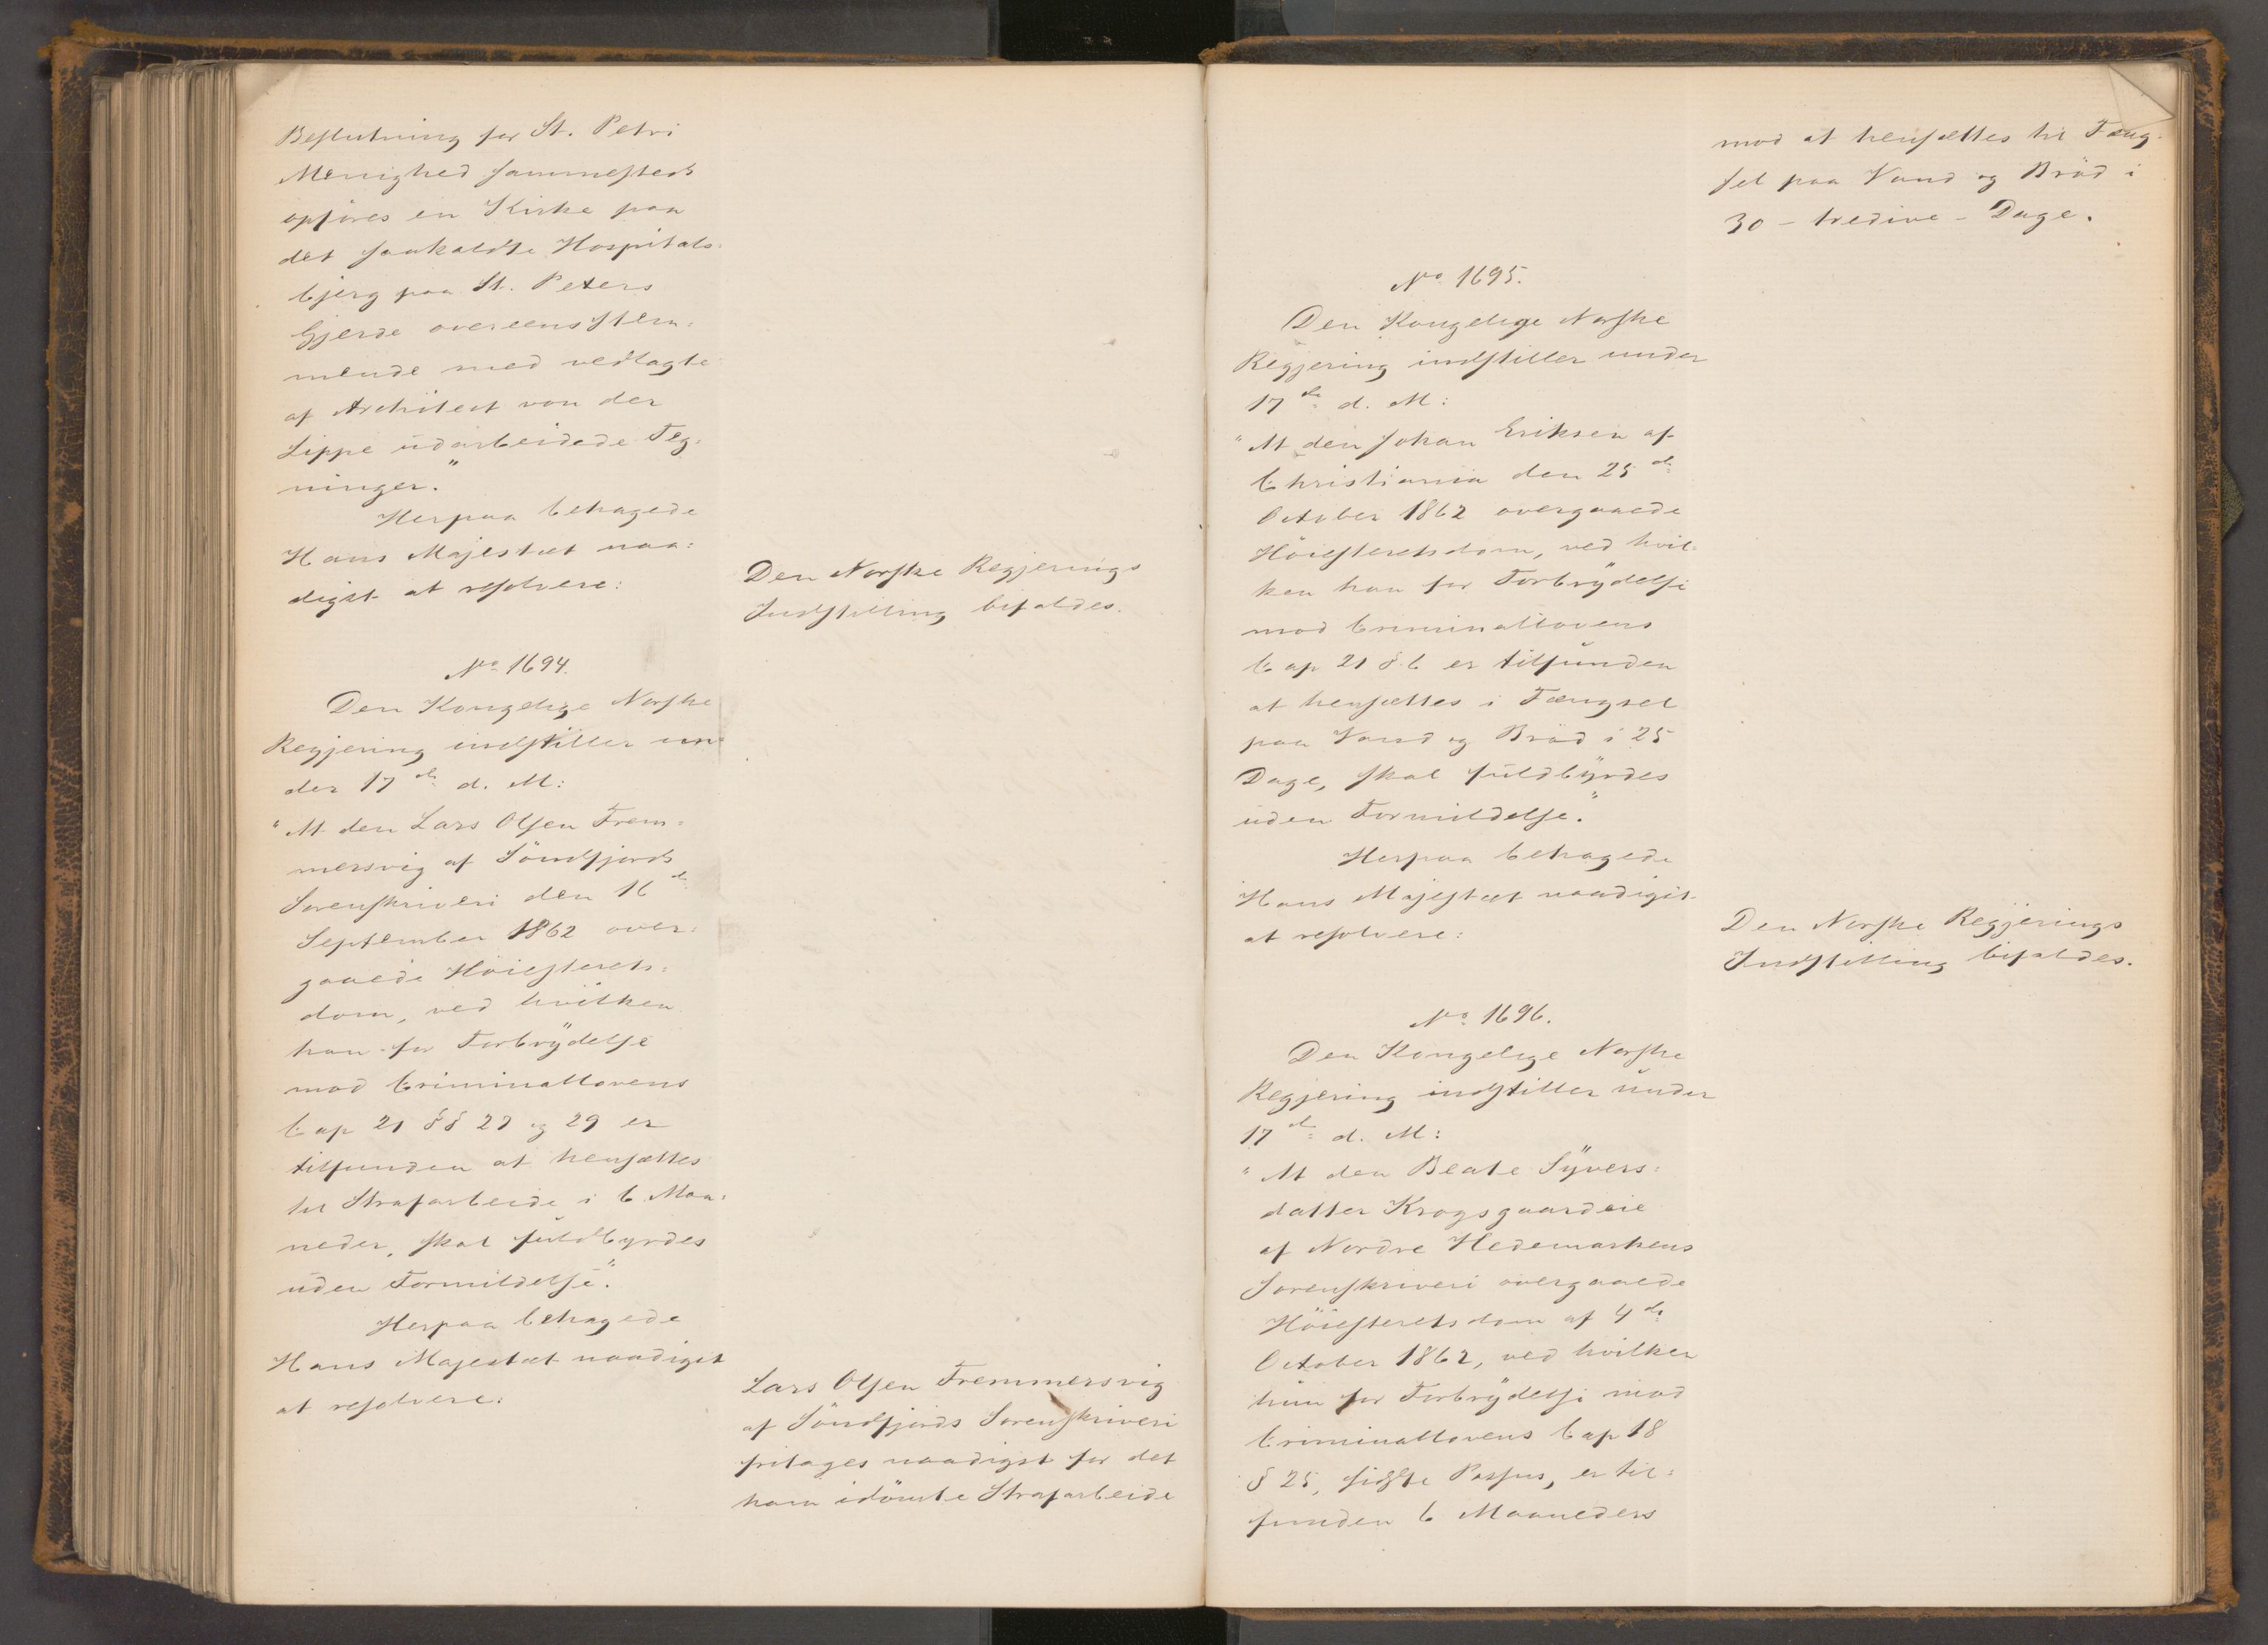 Beslutning for St. Petri
Menighed sammesteds
opføres en Kirke paa
det saakaldte Hospitals-
bjerg paa St. Peters
Gjerde overeensstem-
mende med vedlagte
af Architect von der
Lippe udarbeidede Teg-
ninger."
Herpaa behagede
Hans Majestæt naa-
digst at resolvere:
Den Norske Regjerings
Indstilling bifaldes.
No 1694.
Den Kongelige Norske
Regjering indstiller un-
der 17de d. M:
"At den Lars Olsen Frem-
mersvig af Söndfjords
Sorenskriveri den 16de
September 1862 over-
gaaede Höiesterets-
dom, ved hvilken
han for Forbrydelse
mod Criminallovens
Cap 21 §§ 27 og 29 er
tilfunden at hensættes
til Strafarbeide i 6 Maa-
neder, skal fuldbyrdes
uden Formildelse."
Herpaa behagede
Hans Majestæt naadigst
at resolvere:
Lars Olsen Fremmersvig
af Söndfjords Sorenskriveri
fritages naadigst for det
ham idömte Strafarbeide
mod at hensættes til Fæng-
sel paa Vand og Bröd i
30 - tredive - Dage.
No 1695.
Den Kongelige Norske
Regjering indstiller under
17de d. M:
"At den Johan Eriksen af
Christiania den 25de
October 1862 overgaaede
Höiesteretsdom, ved hvil-
ken han for Forbrydelse
mod Criminallovens
Cap 21 § 6 er tilfunden
at hensættes i Fængsel
paa Vand og Bröd i 25
Dage, skal fuldbyrdes
uden Formildelse."
Herpaa behagede
Hans Majestæt naadigst
at resolvere:
Den Norske Regjerings
Indstilling bifaldes.
No 1696.
Den Kongelige Norske
Regjering indstiller under
17de d. M:
"At den Beate Syvers-
datter Krogsgaardeie
af Nordre Hedemarkens
Sorenskriveri overgaaede
Höiesteretsdom af 4de
October 1862, ved hvilken
hun for Forbrydelse mod
Criminallovens Cap 18
§ 25, sidste Passus, er til-
funden 6 Maaneders